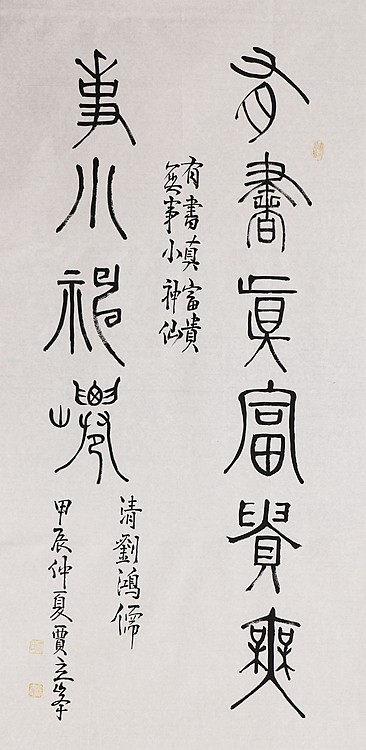 有書真富貴無
事小神僊
有書真富貴
無事小神仙
清劉鴻儒
甲辰仲夏賈立峯